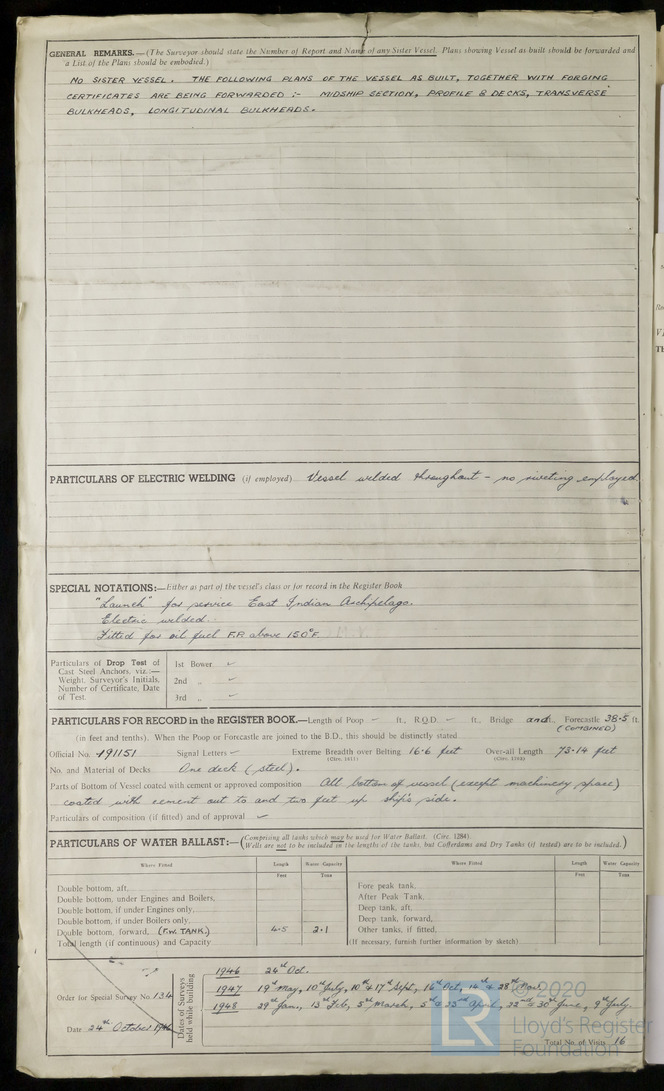 GENERAL REMARKS.—(The Surveyor should state the Number of Report and Name of any Sister Vessel. Plans showing Vessel as built should be forwarded and
a List of the Plans should be embodied.)
NO SISTER VESSEL. THE FOLLOWING PLANS OF THE VESSEL AS BUILT, TOGETHER WITH FORGING
CERTIFICATES ARE BEING FORWARDED :- MIDSHIP SECTION, PROFILE & DECKS, TRANSVERSE
BULKHEADS, LONGITUDINAL BULKHEADS.
PARTICULARS OF ELECTRIC WELDING (if employed) Vessel welded throughout - no riveting employed
SPECIAL NOTATIONS:—Either as part of the vessel's class or for record in the Register Book
"Launch" for service East Indian Archipelago.
Electric welded.
Fitted for oil fuel F.P. above 150°F.
Particulars of Drop Test of
Cast Steel Anchors, viz.:—
Weight, Surveyor's Initials,
Number of Certificate, Date
of Test.
1st Bower
2nd „
3rd „
PARTICULARS FOR RECORD in the REGISTER BOOK.—Length of Poop - ft., R.Q.D. - ft., Bridge and Forecastle 38.5 ft.
(COMBINED)
(in feet and tenths). When the Poop or Forecastle are joined to the B.D., this should be distinctly stated
Official No. 191151 Signal Letters - Extreme Breadth over Belting 16.6 feet Over-all Length 73.14 feet
No. and Material of Decks One deck (steel).
Parts of Bottom of Vessel coated with cement or approved composition All bottom of vessel (except machinery space)
coated with cement out to and two feet up ship's side.
Particulars of composition (if fitted) and of approval
PARTICULARS OF WATER BALLAST:—(Comprising all tanks which may be used for Water Ballast. (Circ. 1284).
Wells are not to be included in the lengths of the tanks, but Cofferdams and Dry Tanks (if tested) are to be included.)
Where Fitted Length Water Capacity Where Fitted Length Water Capacity
Feet Tons Feet Tons
Double bottom, aft, Fore peak tank,
Double bottom, under Engines and Boilers, After Peak Tank,
Double bottom, if under Engines only, Deep tank, aft,
Double bottom, if under Boilers only, Deep tank, forward,
Double bottom, forward, (F.W. TANK.) 4.5 2.1 Other tanks, if fitted,
Total length (if continuous) and Capacity (If necessary, furnish further information by sketch)
Order for Special Survey No. 134
Date 24th October 1946
Dates of Surveys
held while building
1946 24th Oct.
1947 19th May, 10th July, 10th & 17th Sept, 16th Oct, 14th & 28th Nov.
1948 29th Jan., 13th Feb, 5th March, 5th & 23rd April, 22nd & 30th June, 9th July.
Total No. of Visits 16
© 2020
LR
Lloyd's Register
Foundation